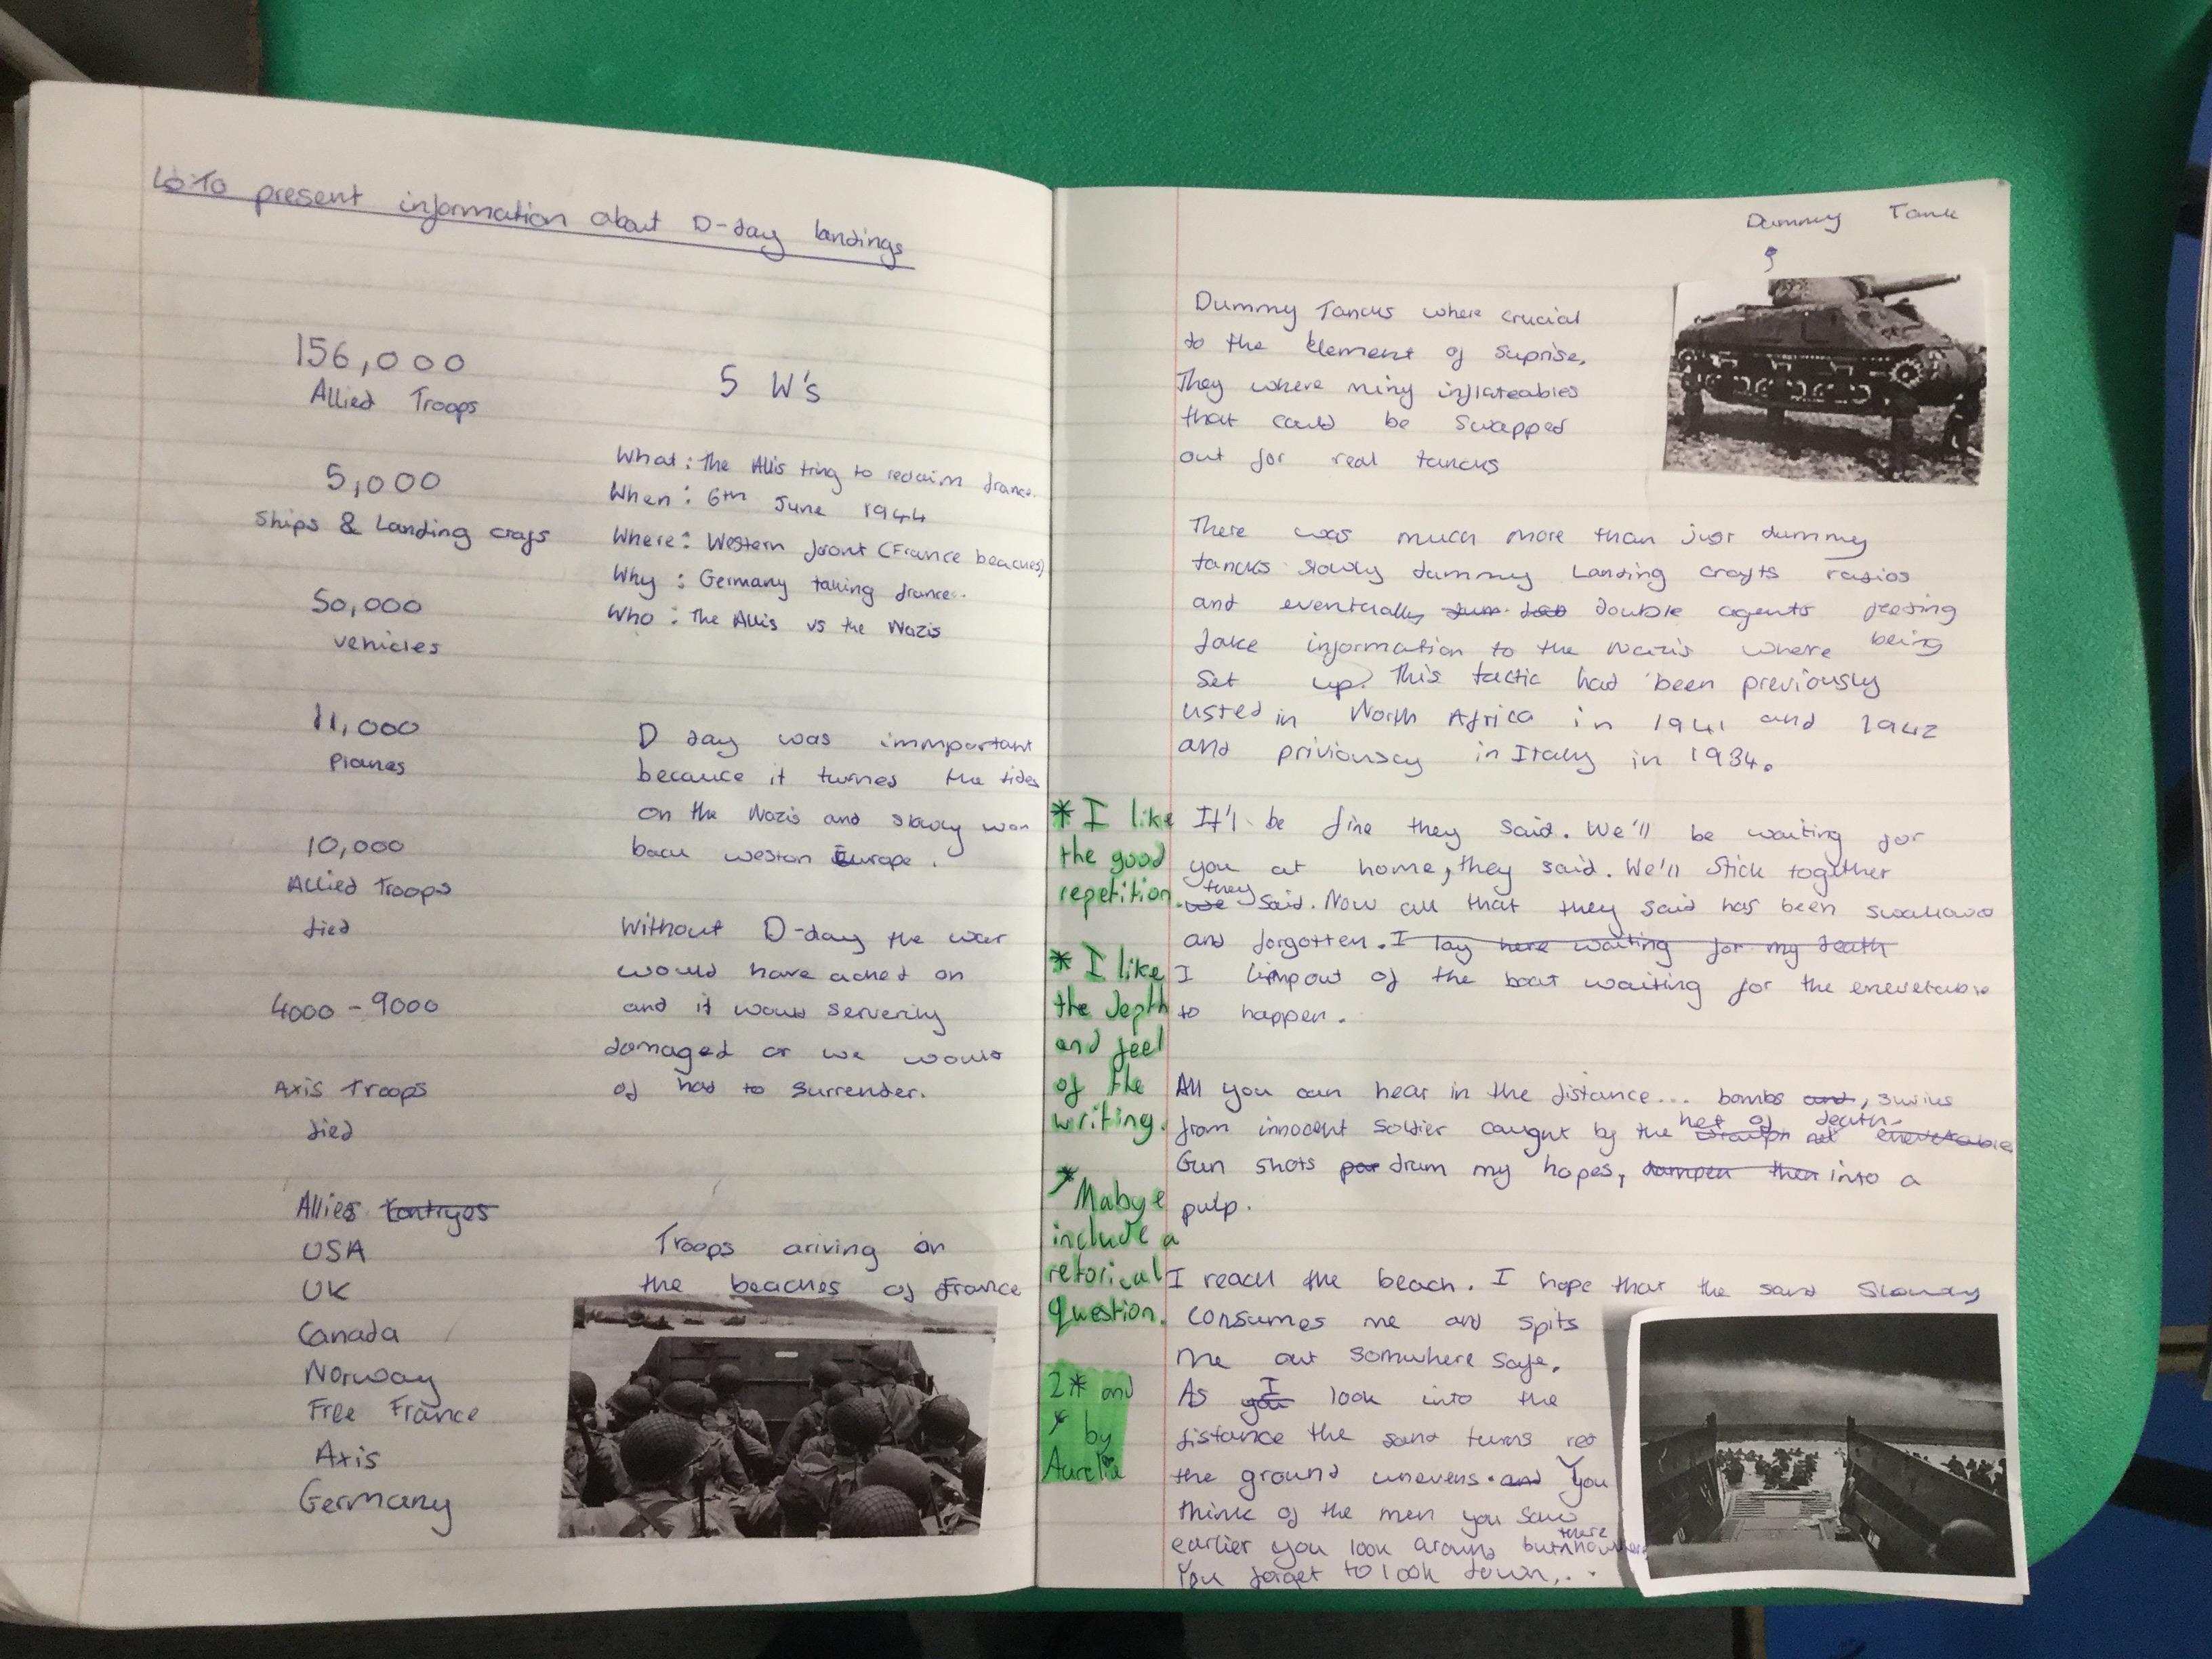 LO: To present information about D-day landings
156,000
Allied Troops
5,000
Ships & Landing crafs
50,000
vehicles
11,000
Planes
10,000
Allied Troops
died
4000 - 9000
Axis Troops
died
Allies Contryes
USA
UK
Canada
Norway
Free France
Axis
Germany
5 W's
What: The Allis tring to reclaim france.
When: 6th June 1944
Where: Western front (France beaches)
Why: Germany taking france.
Who: The Allis vs the Nazis
D day was immportant
because it turned the tides
on the Nazis and slowly won
back weston Europe.
Without D-day the war
would have ached on
and it would serverly
damaged or we would
of had to surrender.
Troops ariving on
the beaches of France
Dummy Tank
Dummy Tancks where crucial
to the Element of Suprise.
They where miny inflateables
that could be Swapped
out for real tancks
There was much more than just dummy
tancks slowly dummy Landing crafts radios
and eventually double agents feeding
fake information to the Nazis where being
set up. This tactic had been previously
usted in North Africa in 1941 and 1942
and priviousay in Italy in 1934.
It'l be fine they said. We'll be waiting for
you at home, they said. We'll stick together
we they said. Now all that they said has been swallowd
and forgotten. I lay here waiting for my death
I limp out of the boat waiting for the enevetable
to happen.
All you can hear in the distance... bombs and,
from innocent soldier caught by the net of death.
Gun shots drum my hopes, dampen them into a
pulp.
I reach the beach. I hope that the sand Slowly
consumes me and spits
me out somwhere safe.
As you I look into the
distance the sand turns red
the ground unevens. and You
think of the men you saw
earlier you look around but there nowhere
You forget to look down...
* I like
the good
repetition.
* I like
the depth
and feel
of the
writing.
Mabye
include a
retorical
question.
2* and
by
Aurelia